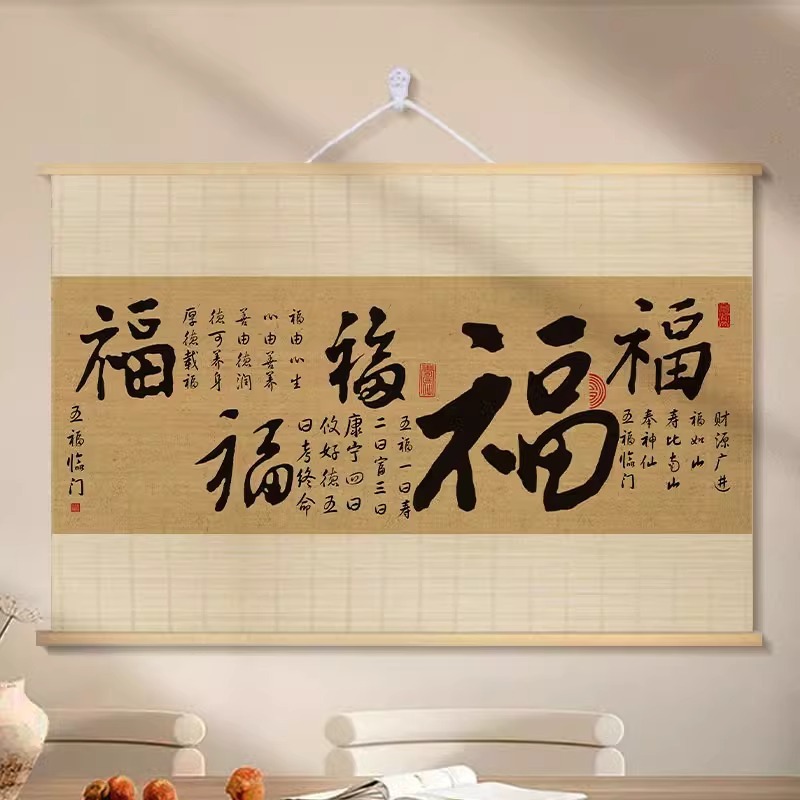 福
财源广进
福如山
寿比南山
奉神仙
五福临门
福
五福一曰寿
二曰富三曰
康宁四曰
攸好德五
曰考终命
福
福由心生
心由善养
善由德润
德可养身
厚德载福
福
福
五福临门